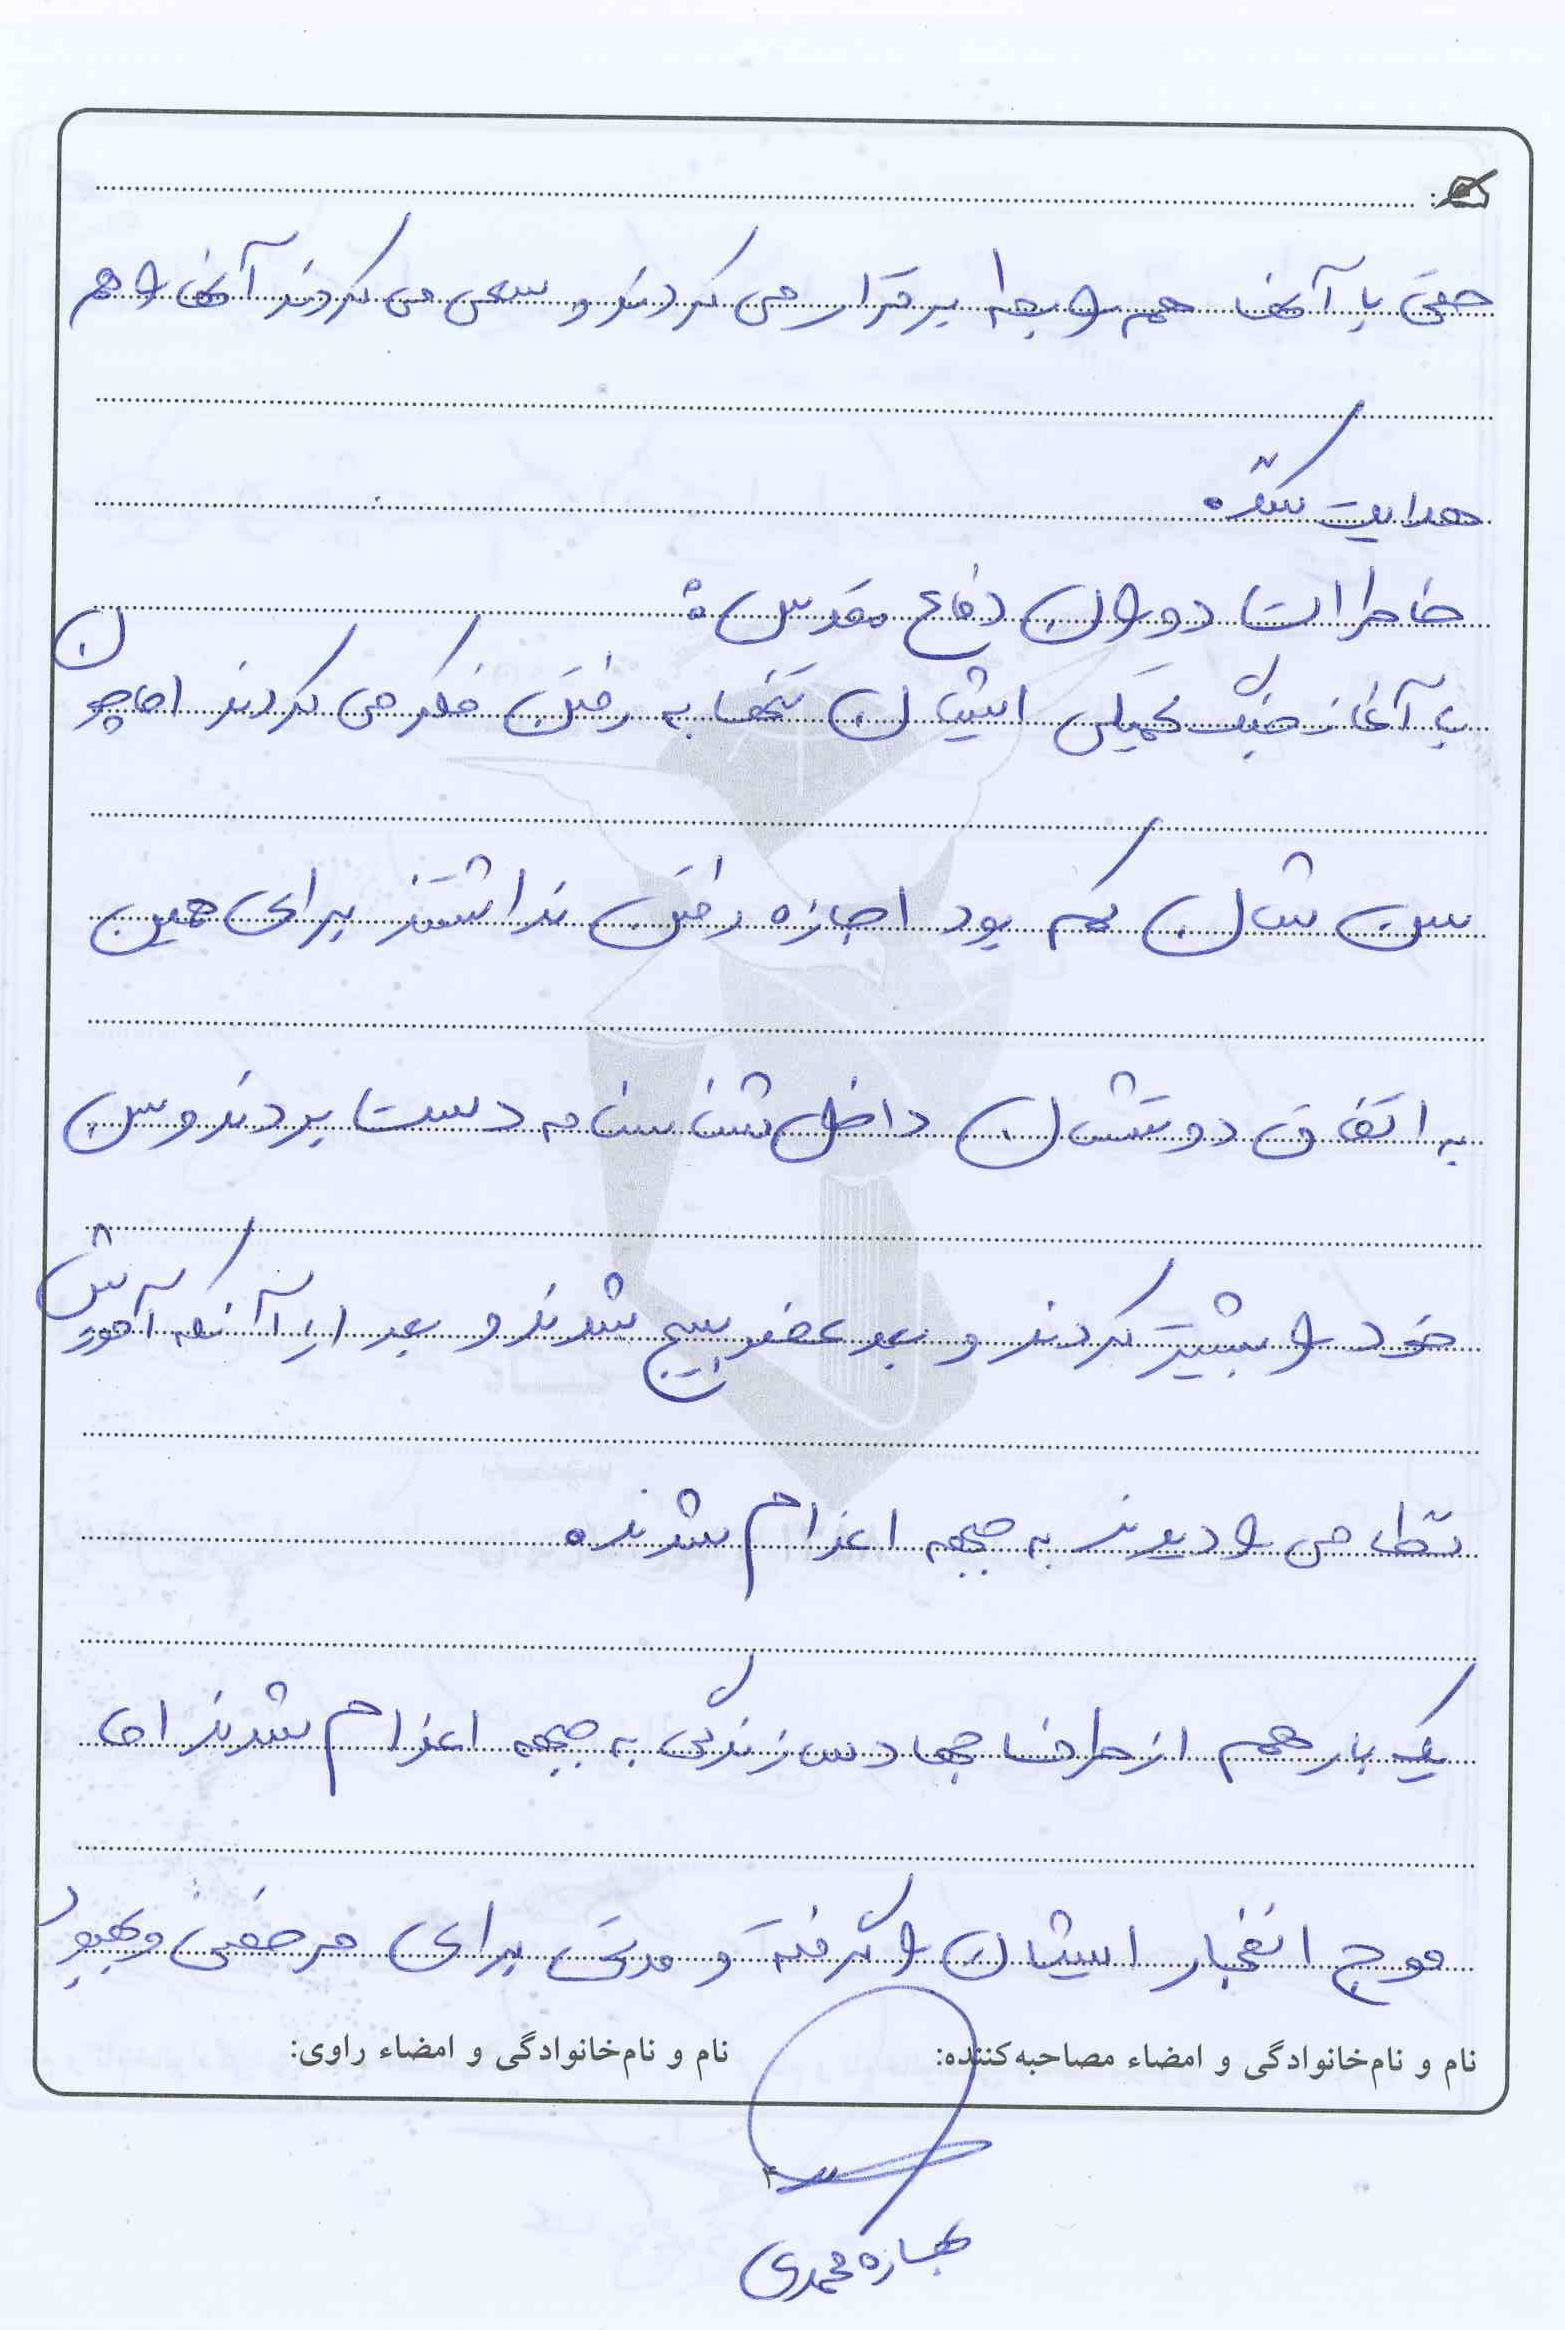 حتی با آنها هم رابطه برقرار می کردند و سعی می کردند آنها را هم
هدایت کنند.
خاطرات دوران دفاع مقدس:
با آغاز جنگ تحمیلی ایشان تنها به رفتن فکر می کردند اما چون
سن شان کم بود اجازه رفتن نداشتند برای همین
به اتفاق دوستشان داخل شناسنامه دست بردند و سن
خود را بیشتر کردند و بعد عضو بسیج شدند و بعد از آنکه آموزش
نظامی را دیدند به جبهه اعزام شدند.
یک بار هم از طرف جهاد سازندگی به جبهه اعزام شدند اما
موج انفجار ایشان را گرفته و مدتی برای مرخصی و بهبود
نام و نام‌خانوادگی و امضاء مصاحبه‌کننده:
نام و نام‌خانوادگی و امضاء راوی:
بهاره محمدی